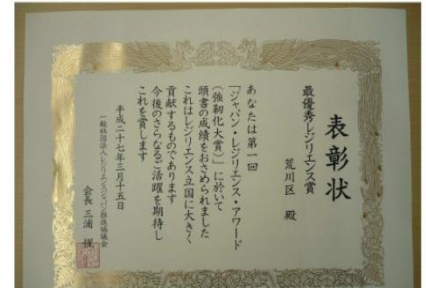 表彰状
最優秀レジリエンス賞
荒川区 殿
あなたは第一回
「ジャパン・レジリエンス・アワード
(強靭化大賞)」に於いて
頭書の成績をおさめられました
これはレジリエンス立国に大きく
貢献するものであります
今後のさらなるご活躍を期待し
これを賞します
平成二十七年三月十五日
一般社団法人レジリエンスジャパン推進協議会
会長 三浦 惺